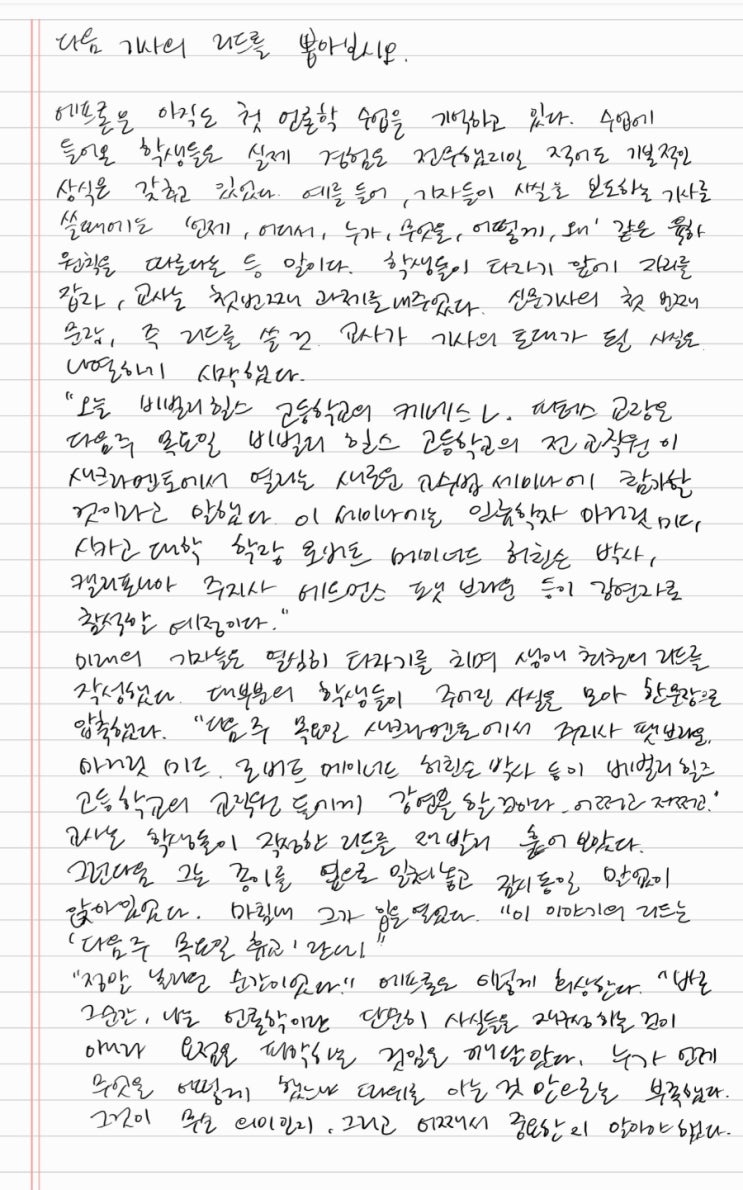 다음 기사의 리드를 뽑아보시오.
에프론은 아직도 첫 언론학 수업을 기억하고 있다. 수업에
들어온 학생들은 실제 경험은 전무했지만 적어도 기본적인
상식은 갖추고 있었다. 예를 들어, 기자들이 사실을 보도하는 기사를
쓸때에는 '언제, 어디서, 누가, 무엇을, 어떻게, 왜' 같은 육하
원칙을 따른다는 등 말이다. 학생들이 타자기 앞에 자리를
잡자, 교사는 첫번째 과제를 내주었다. 신문기사의 첫 번째
문장, 즉 리드를 쓸 것. 교사가 기사의 토대가 될 사실을
나열하기 시작했다.
"오늘 비벌리힐스 고등학교의 케네스 L. 피터스 교장은
다음주 목요일 비벌리 힐스 고등학교의 전 교직원이
새크라멘토에서 열리는 새로운 교수법 세미나에 참가할
것이라고 말했다. 이 세미나에는 인류학자 마가릿 미드,
시카고 대학 학장 로버트 메이너드 허친슨 박사,
캘리포니아 주지사 에드먼스 팻 브라운 등이 강연자로
참석할 예정이다."
미래의 기자들은 열심히 타자기를 치며 생애 최초의 리드를
작성했다. 대부분의 학생들이 주어진 사실을 모아 한문장으로
압축했다. "다음 주 목요일 새크라멘토에서 주지사 팻브라운,
마가릿 미드, 로버트 메이너드 허친슨 박사 등이 베벌리힐즈
고등학교의 교직원 들에게 강연을 할 것이다. 어쩌고 저쩌고."
교사는 학생들이 작성한 리드를 재빨리 훑어 보았다.
그런다음 그는 종이를 옆으로 밀쳐놓고 잠시동안 말없이
앉아있었다. 마침내 그가 입을 열었다. "이 이야기의 리드는
'다음 주 목요일 휴교'라네!"
"정말 놀라운 순간이었다." 에프론은 이렇게 회상한다. "바로
그순간, 나는 언론학이란 단순히 사실들을 재구성하는 것이
아니라 요점을 파악하는 것임을 깨달았다. 누가 언제
무엇을 어떻게 했느냐 따위를 아는 것 만으로는 부족했다.
그것이 무슨 의미인지, 그리고 어째서 중요한지 알아야 했다.